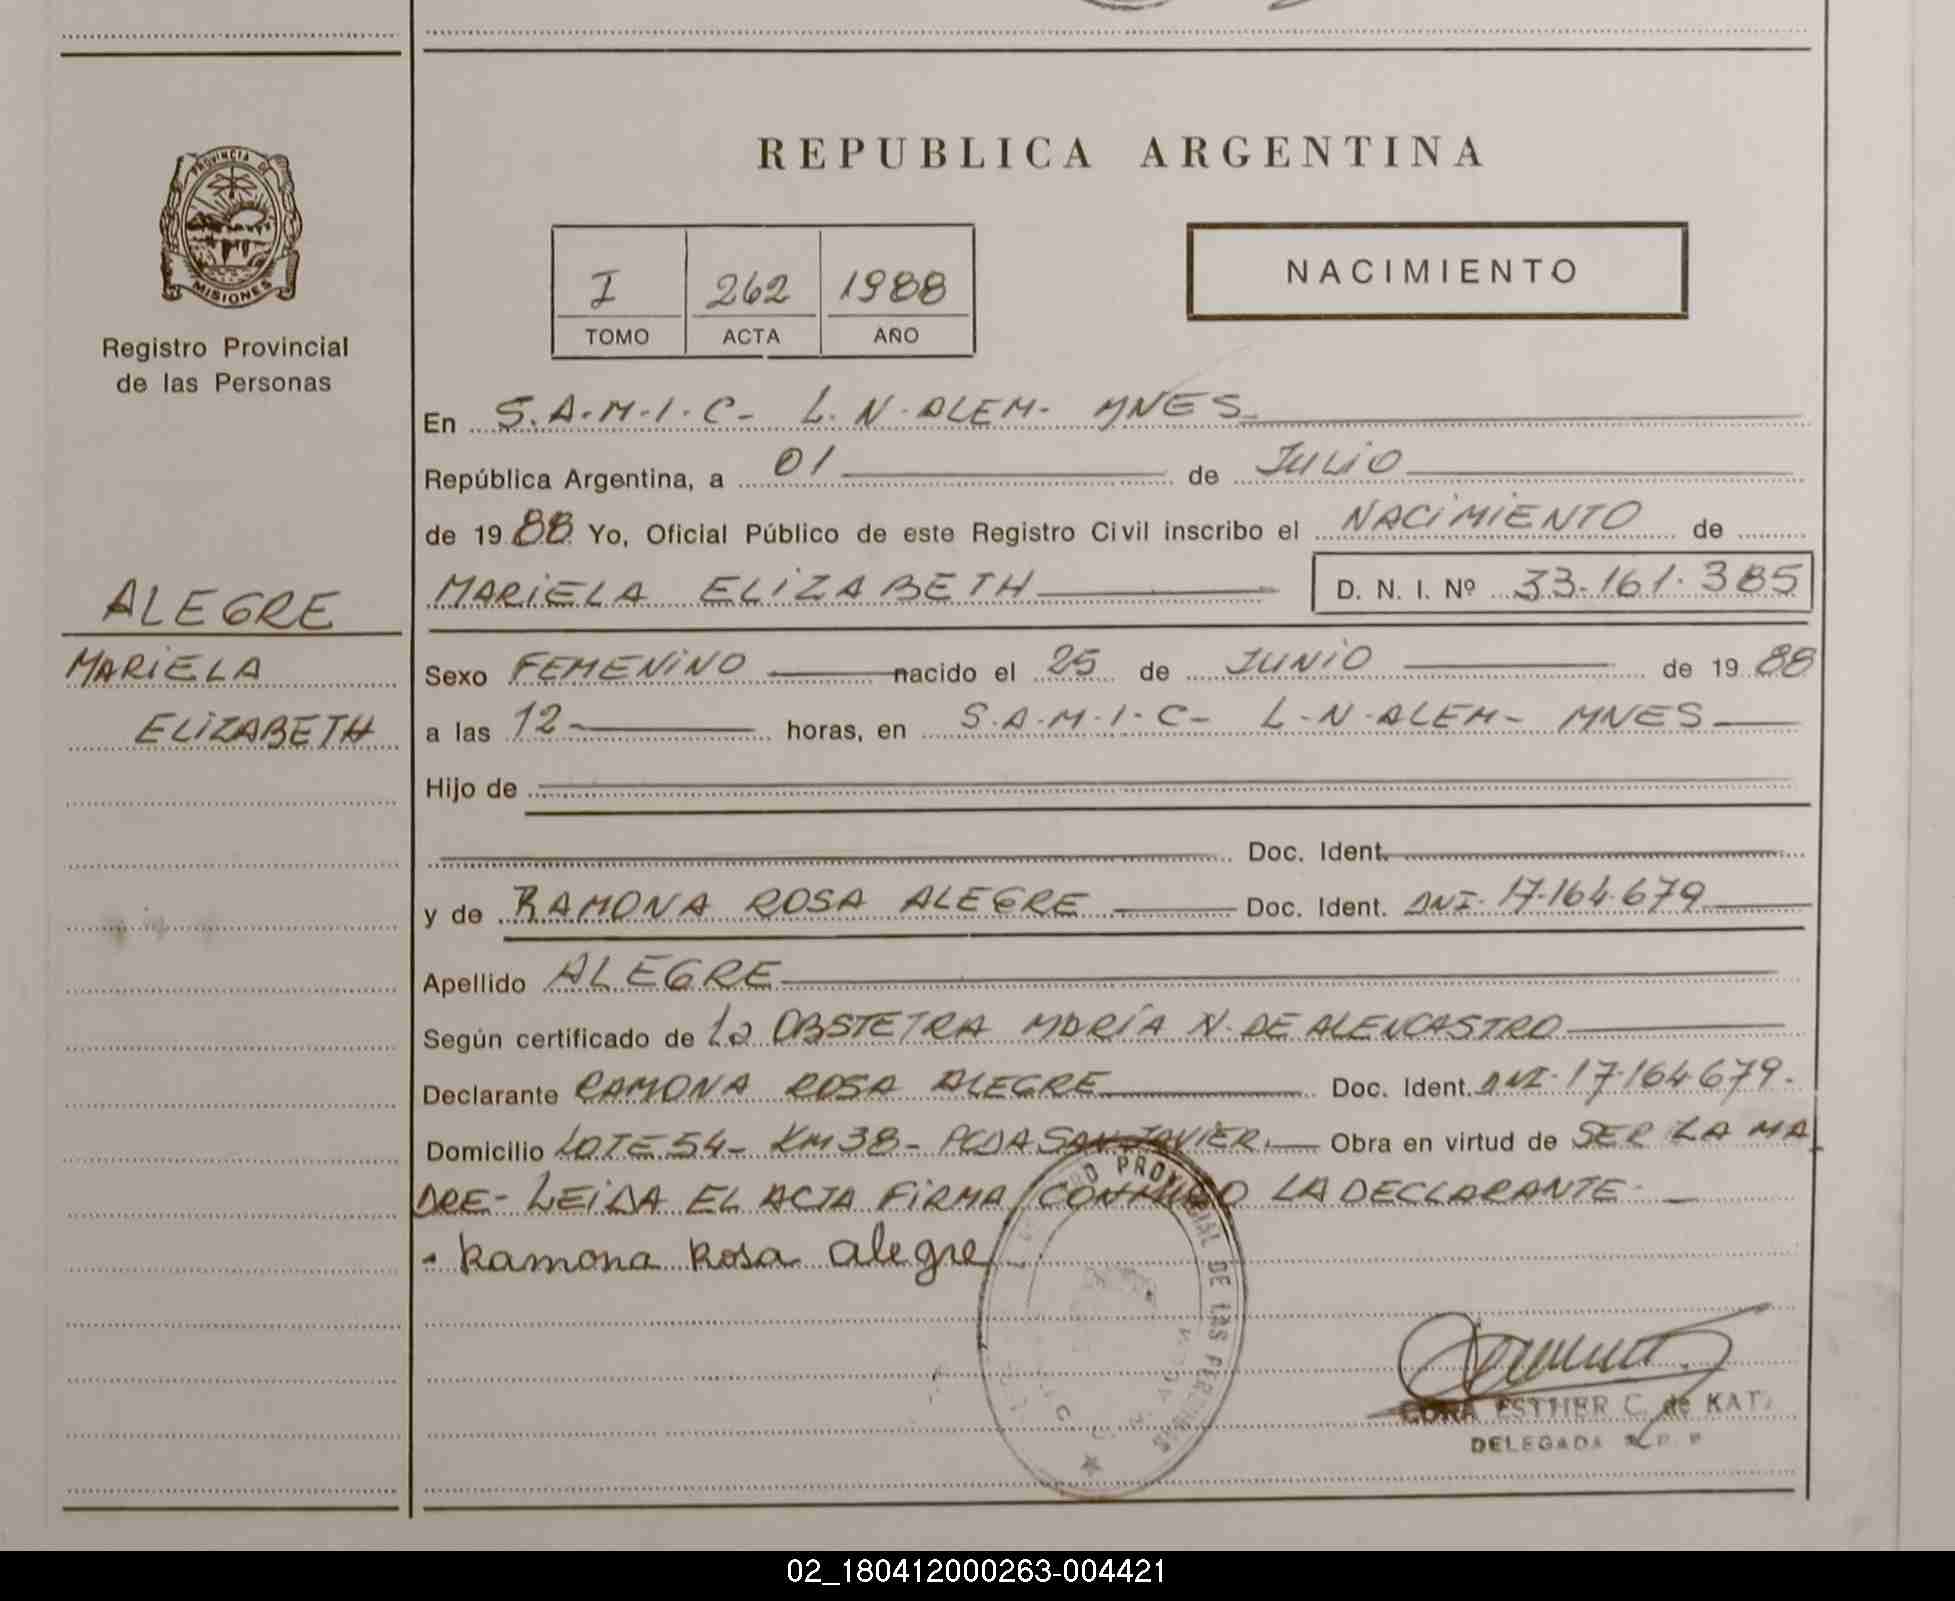 PROVINCIA DE
MISIONES
Registro Provincial
de las Personas
ALEGRE
MARIELA
ELIZABETH
REPUBLICA ARGENTINA
I 262 1988
TOMO ACTA AÑO
NACIMIENTO
En S.A.M.I.C- L.N.ALEM- MNES
República Argentina, a 01 de JULIO
de 1988 Yo, Oficial Público de este Registro Civil inscribo el NACIMIENTO de
MARIELA ELIZABETH D. N. I. Nº 33.161.385
Sexo FEMENINO nacido el 25 de JUNIO de 1988
a las 12- horas, en S.A.M.I.C- L-N-ALEM- MNES
Hijo de
Doc. Ident.
y de RAMONA ROSA ALEGRE Doc. Ident. DNI. 17.164.679
Apellido ALEGRE
Según certificado de La OBSTETRA MARÍA N. DE ALENCASTRO
Declarante RAMONA ROSA ALEGRE Doc. Ident. DNI. 17.164679.
Domicilio LOTE 54- KM 38- PCDA SAN JAVIER. Obra en virtud de SER LA MA
DRE- LEIDA EL ACTA FIRMA CONMIGO LA DECLARANTE-
Ramona Rosa alegre
PROVINCIAL DE LAS PERSONAS
ESTHER C. de KATZ
DELEGADA R. P. P.
02_180412000263-004421